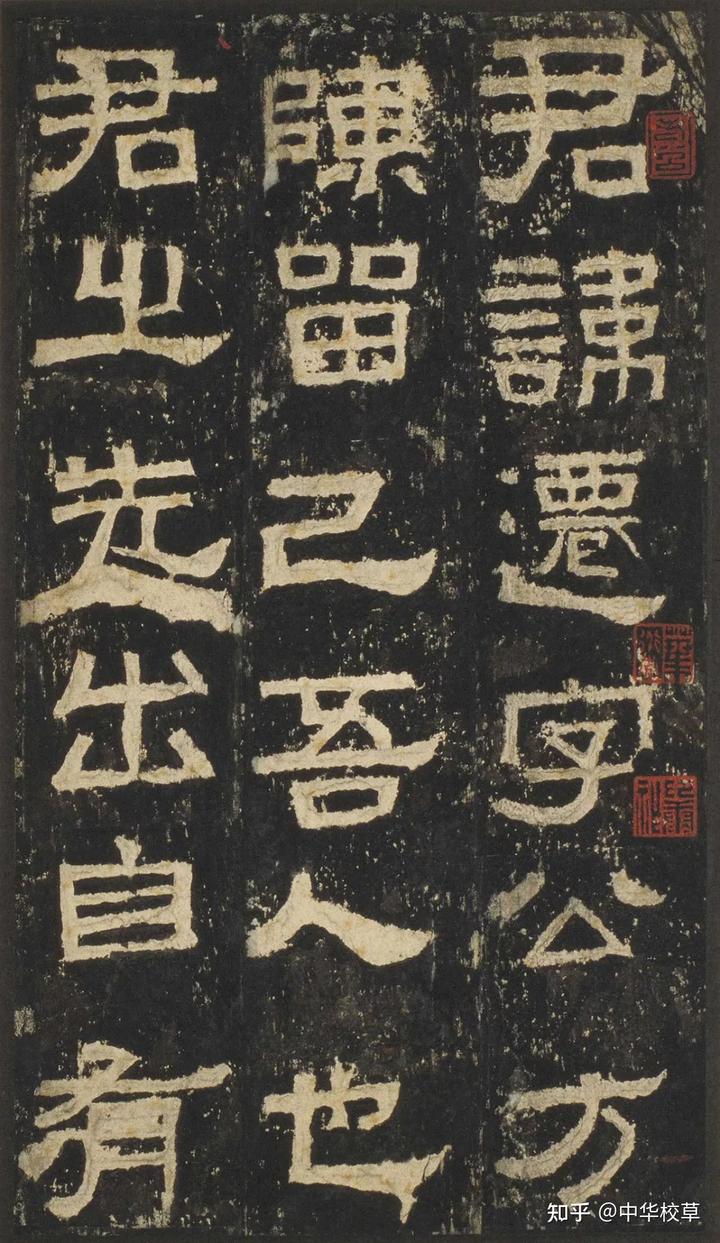 君諱遷字公方
陳留己吾人也
君之先出自有
知乎 @中华校草